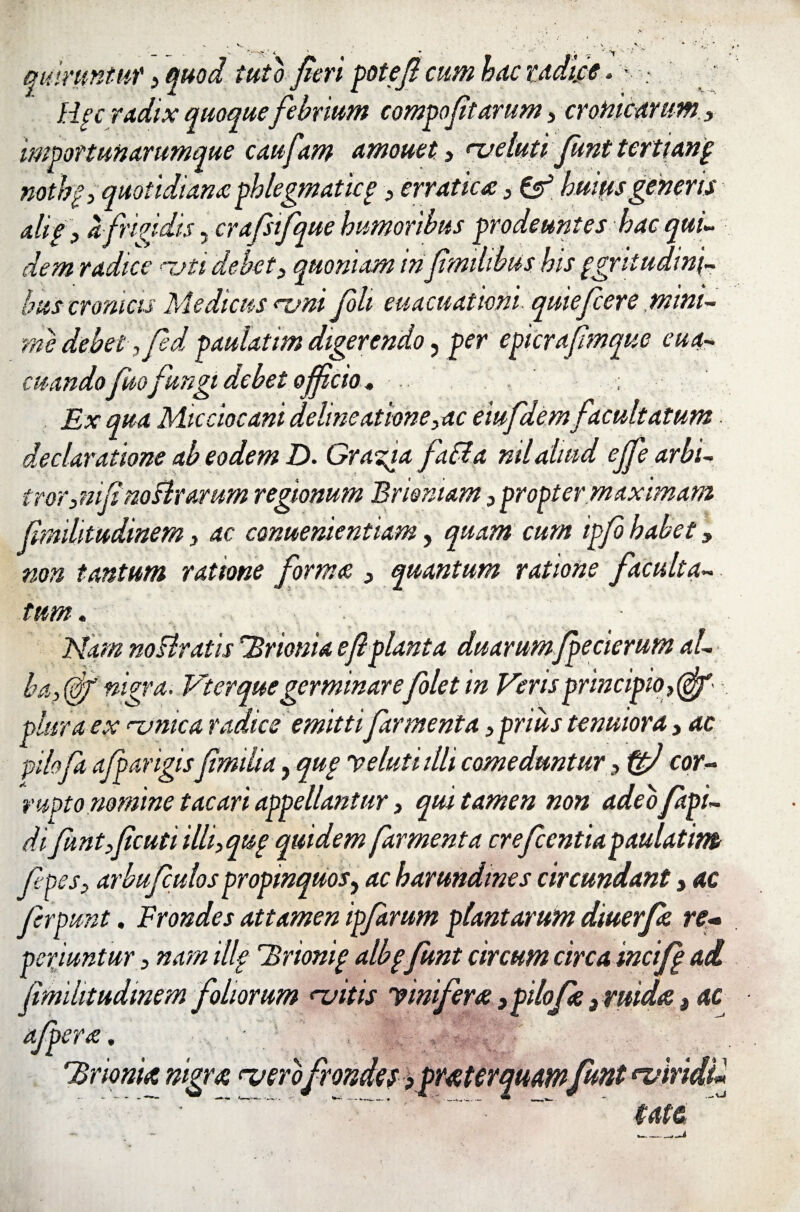 quiruntur, quod tutò fieri potest cum hac radice.
Hęc radix quoque febrium compositarum, cronicarum,
importunarumque causam amouet, veluti sunt tertianę
nothę, quotidianæ phlegmaticę, erraticæ, & huius generis
alię, à frigidis, crassisque humoribus prodeuntes hac qui-
dem radice vti debet, quoniam in similibus his ęgritudini-
bus cronicis Medicus vni soli euacuationi quiescere mini-
mè debet, sed paulatim digerendo, per epicrasimque eua-
cuando suo fungi debet officio.
Ex qua Micciocani delineatione, ac eiusdem facultatum
declaratione ab eodem D. Grazia facta nil aliud esse arbi-
tror, nisi nostrarum regionum Brioniam, propter maximam
similitudinem, ac conuenientiam, quam cum ipso habet,
non tantum ratione formæ, quantum ratione faculta-
tum.
Nam nostratis Brionia est planta duarum specierum al-
ba, & nigra. Vterque germinare solet in Veris principio, &
plura ex vnica radice emitti sarmenta, prius tenuiora, ac
pilosa asparigis similia, quę veluti illi comeduntur, & cor-
rupto nomine tacari appellantur, qui tamen non adeò sapi-
di sunt, sicuti illi, quę quidem sarmenta crescentia paulatim
sepes, arbusculos propinquos, ac harundines circundant, ac
serpunt. Frondes attamen ipsarum plantarum diuersæ re-
periuntur, nam illę Brionię albę sunt circum circa incisę ad
similitudinem foliorum vitis viniferæ, pilosæ, ruidæ, ac
asperæ.
Brioniæ nigræ verò frondes, præterquam sunt viridi-
tate